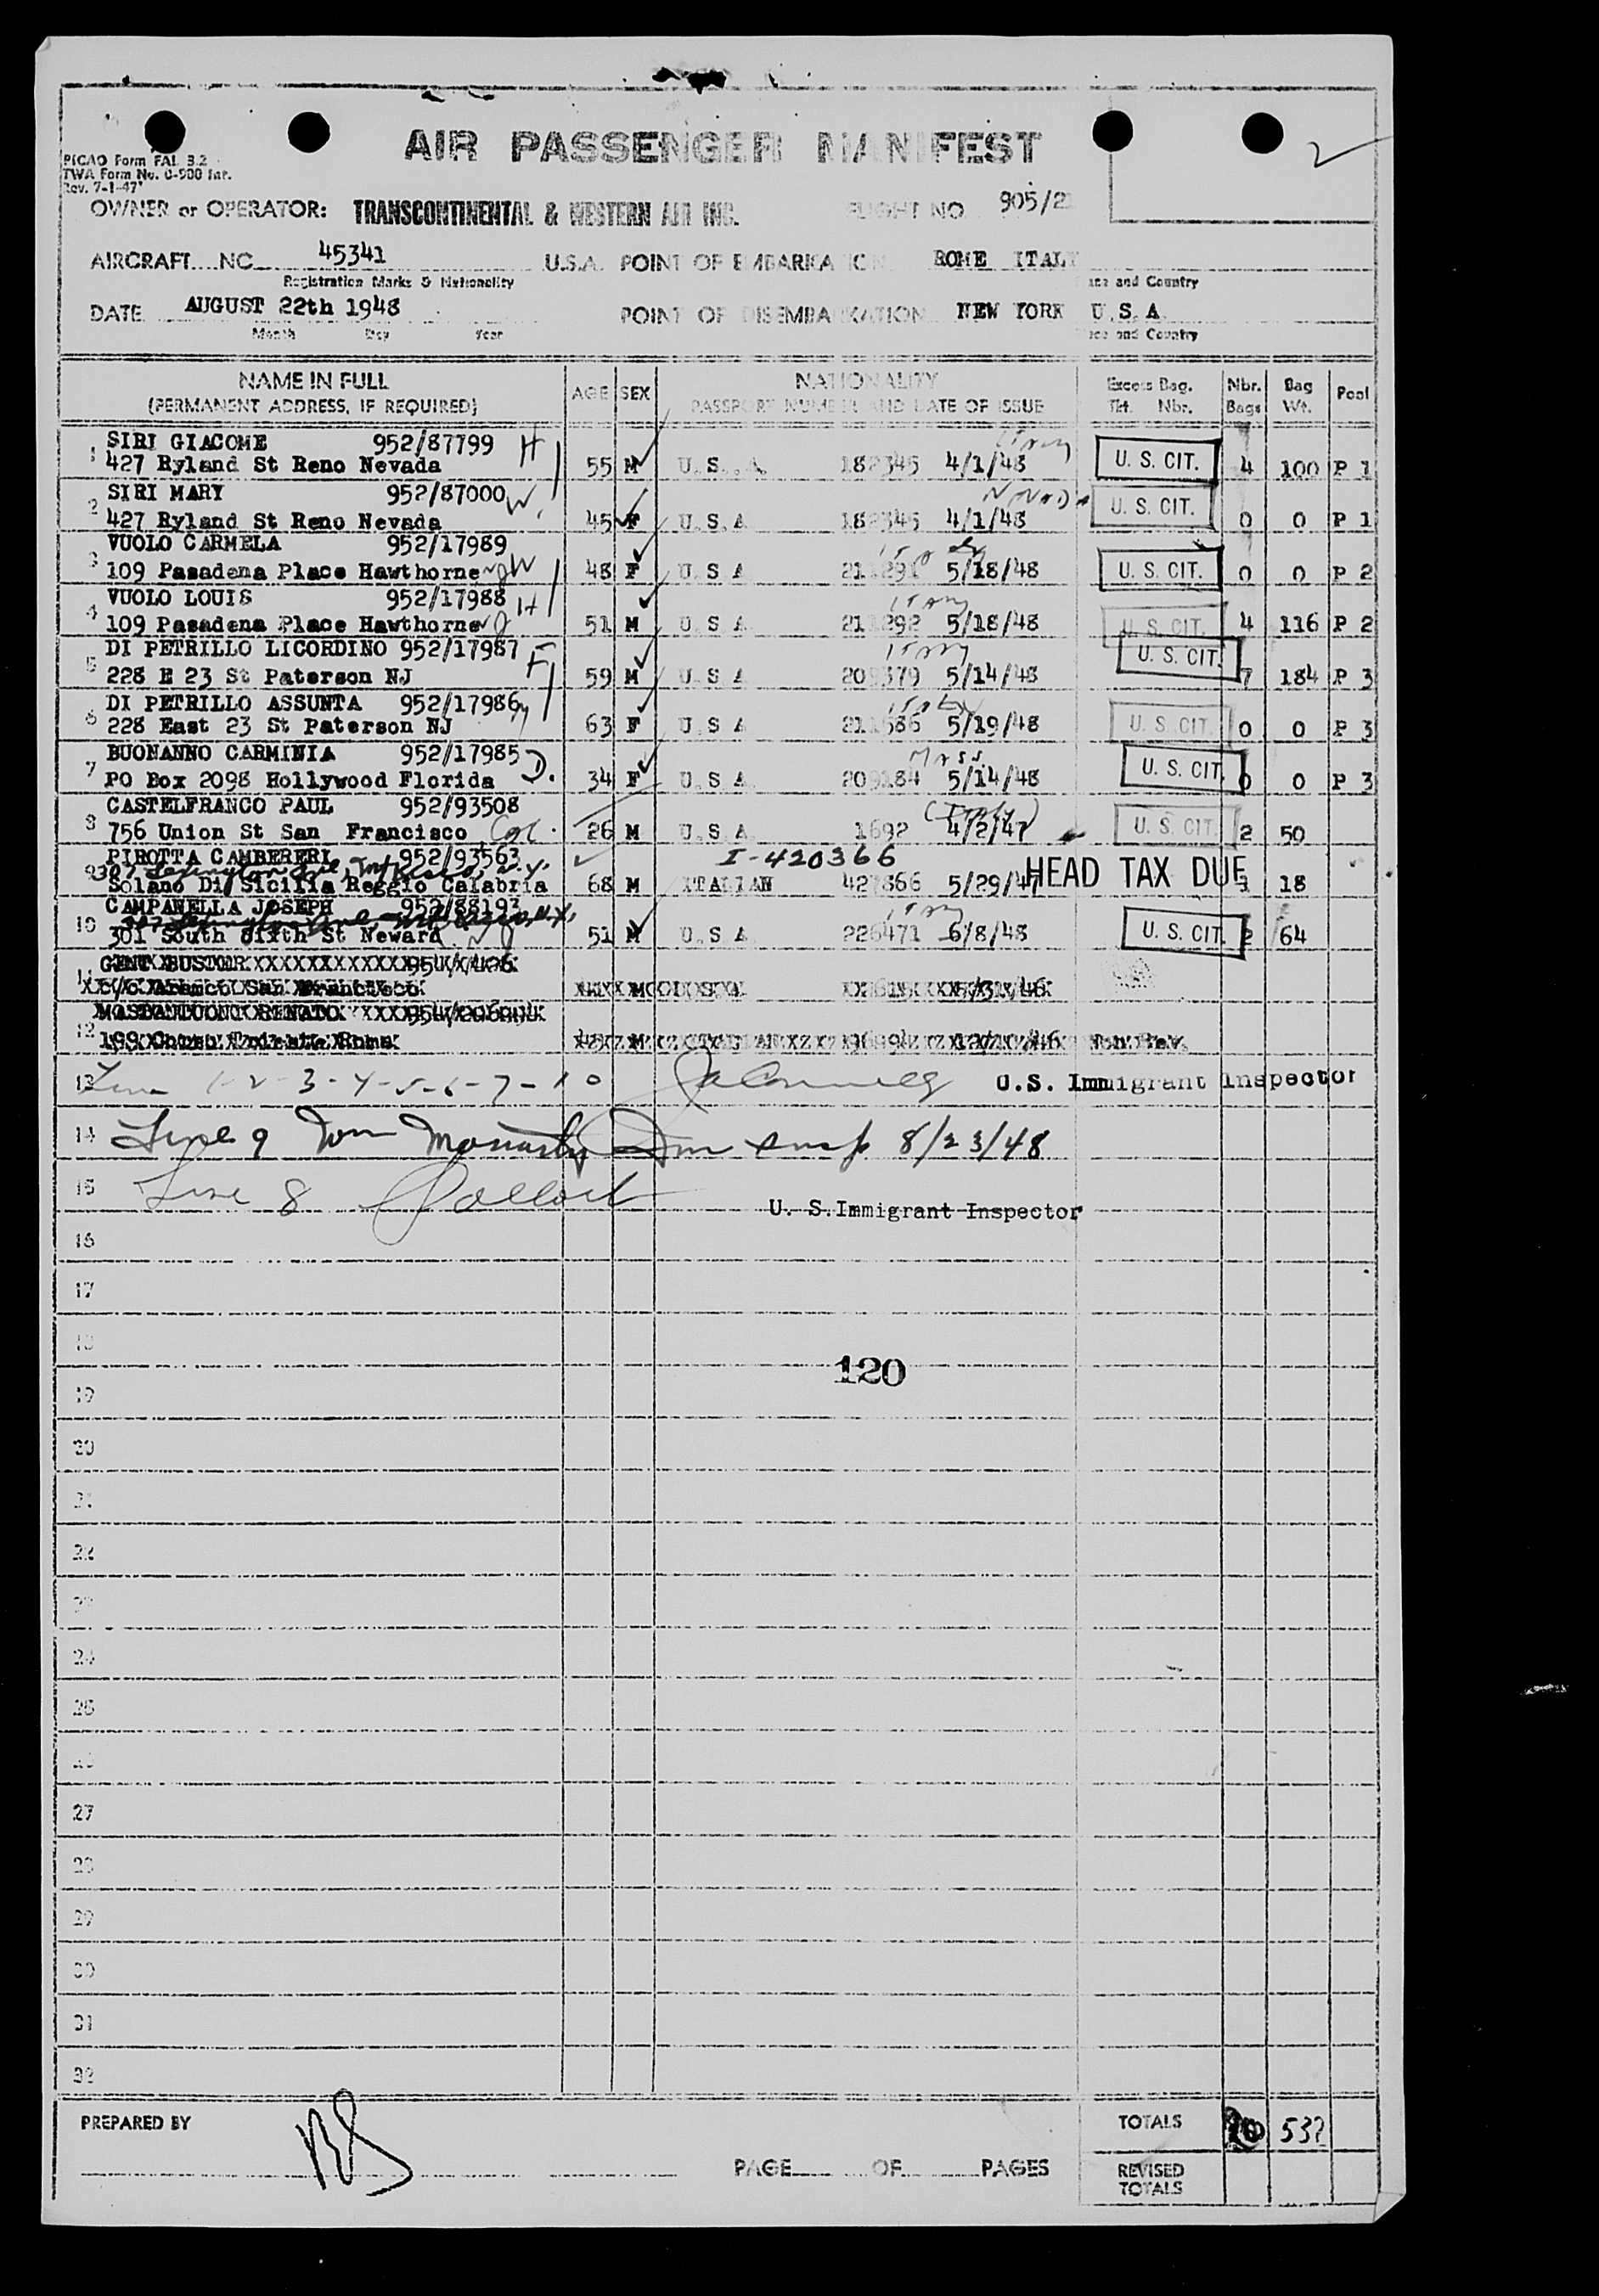 AIR PASSENGER MANIFEST
PICAO Form FAL 3.2
TWA Form No. 0-900 Int.
Rev. 7-1-47
OWNER or OPERATOR: TRANSCONTINENTAL & WESTERN AIR INC. FLIGHT NO. 905/2
AIRCRAFT NC 45341 U.S.A. POINT OF EMBARKATION ROME ITALY
Registration Marks & Nationality and Country
DATE AUGUST 22th 1948 POINT OF DISEMBARKATION NEW YORK U.S.A.
Month Day Year and Country
NAME IN FULL AGE SEX NATIONALITY Excess Bag. Nbr. Bag Pool
(PERMANENT ADDRESS, IF REQUIRED) PASSPORT NUMBER AND DATE OF ISSUE Tkt. Nbr. Bags Wt.
1 SIRI GIACOME 952/87799 H Italy
427 Ryland St Reno Nevada 55 M U.S.A. 182345 4/1/48 U. S. CIT. 4 100 P 1
2 SIRI MARY 952/87000 W. Nevada
427 Ryland St Reno Nevada 45 F U.S.A 182345 4/1/48 U. S. CIT. 0 0 P 1
3 VUOLO CARMELA 952/17989 Italy
109 Pasadena Place Hawthorne NJ W 48 F U S A 211291 5/18/48 U. S. CIT. 0 0 P 2
4 VUOLO LOUIS 952/17988 H Italy
109 Pasadena Place Hawthorne NJ 51 M U S A 211292 5/18/48 U. S. CIT. 4 116 P 2
5 DI PETRILLO LICORDINO 952/17987 F Italy
228 E 23 St Paterson NJ 59 M U S A 209379 5/14/48 U. S. CIT. 7 184 P 3
6 DI PETRILLO ASSUNTA 952/17986 M Italy
228 East 23 St Paterson NJ 63 F U S A 211586 5/19/48 U. S. CIT. 0 0 P 3
7 BUONANNO CARMINIA 952/17985 D. Mass.
PO Box 2098 Hollywood Florida 34 F U.S A 209184 5/14/48 U. S. CIT. 0 0 P 3
8 CASTELFRANCO PAUL 952/93508 (Italy)
756 Union St San Francisco Cal. 26 M U.S.A. 1692 4/2/47 U. S. CIT. 2 50
9 PIROTTA CAMBERERI 952/93563 I-420366
Solano Di Sicilia Reggio Calabria 68 M ITALIAN 427866 5/29/47 HEAD TAX DUE 1 18
10 CAMPANELLA JOSEPH 952/88193 Italy
301 South Sixth St Newark NJ 51 M U.S A 226471 6/8/48 U. S. CIT. 2 64
11
12
13 Line 1-2-3-4-5-6-7-10 U.S. Immigrant Inspector
14 Line 9 Imm Insp 8/23/48
15 Line 8
U. S. Immigrant Inspector
16
17
18
120
19
20
21
22
23
24
25
26
27
28
29
30
31
32
PREPARED BY TOTALS 532
PAGE OF PAGES REVISED
TOTALS